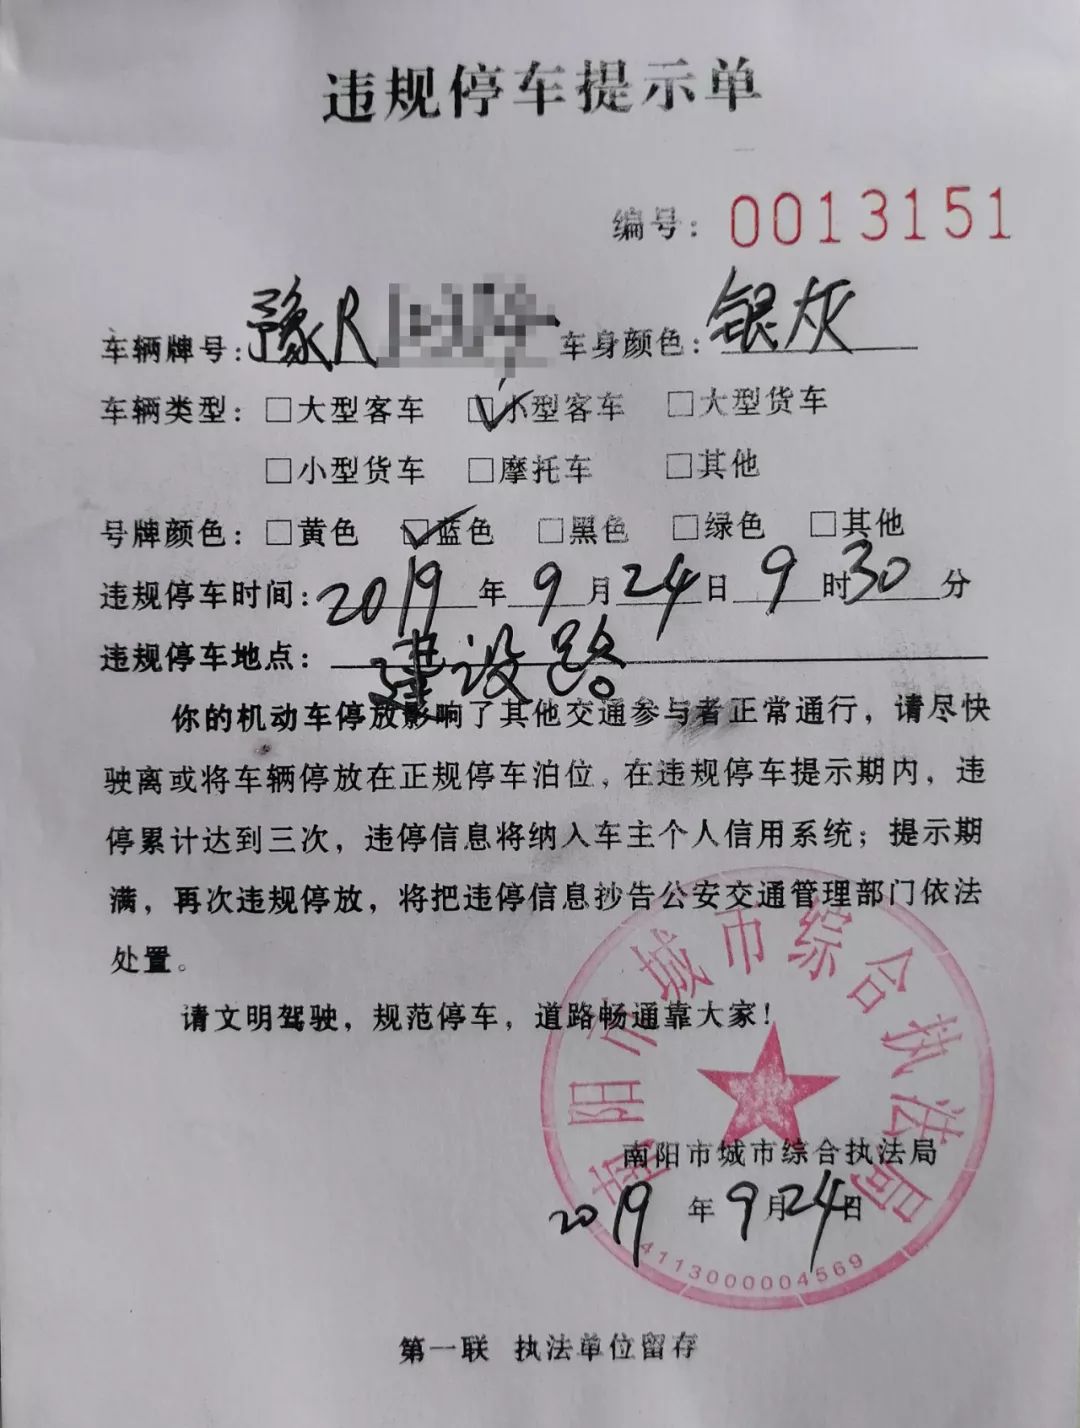 违规停车提示单
编号：0013151
车辆牌号：豫R 车身颜色：银灰
车辆类型：□大型客车 ☑小型客车 □大型货车
□小型货车 □摩托车 □其他
号牌颜色：□黄色 ☑蓝色 □黑色 □绿色 □其他
违规停车时间：2019年9月24日9时30分
违规停车地点：建设路
你的机动车停放影响了其他交通参与者正常通行，请尽快
驶离或将车辆停放在正规停车泊位，在违规停车提示期内，违
停累计达到三次，违停信息将纳入车主个人信用系统；提示期
满，再次违规停放，将把违停信息抄告公安交通管理部门依法
处置。
请文明驾驶，规范停车，道路畅通靠大家！
南阳市城市综合执法局
南阳市城市综合执法局
2019年9月24日
4113000004569
第一联 执法单位留存